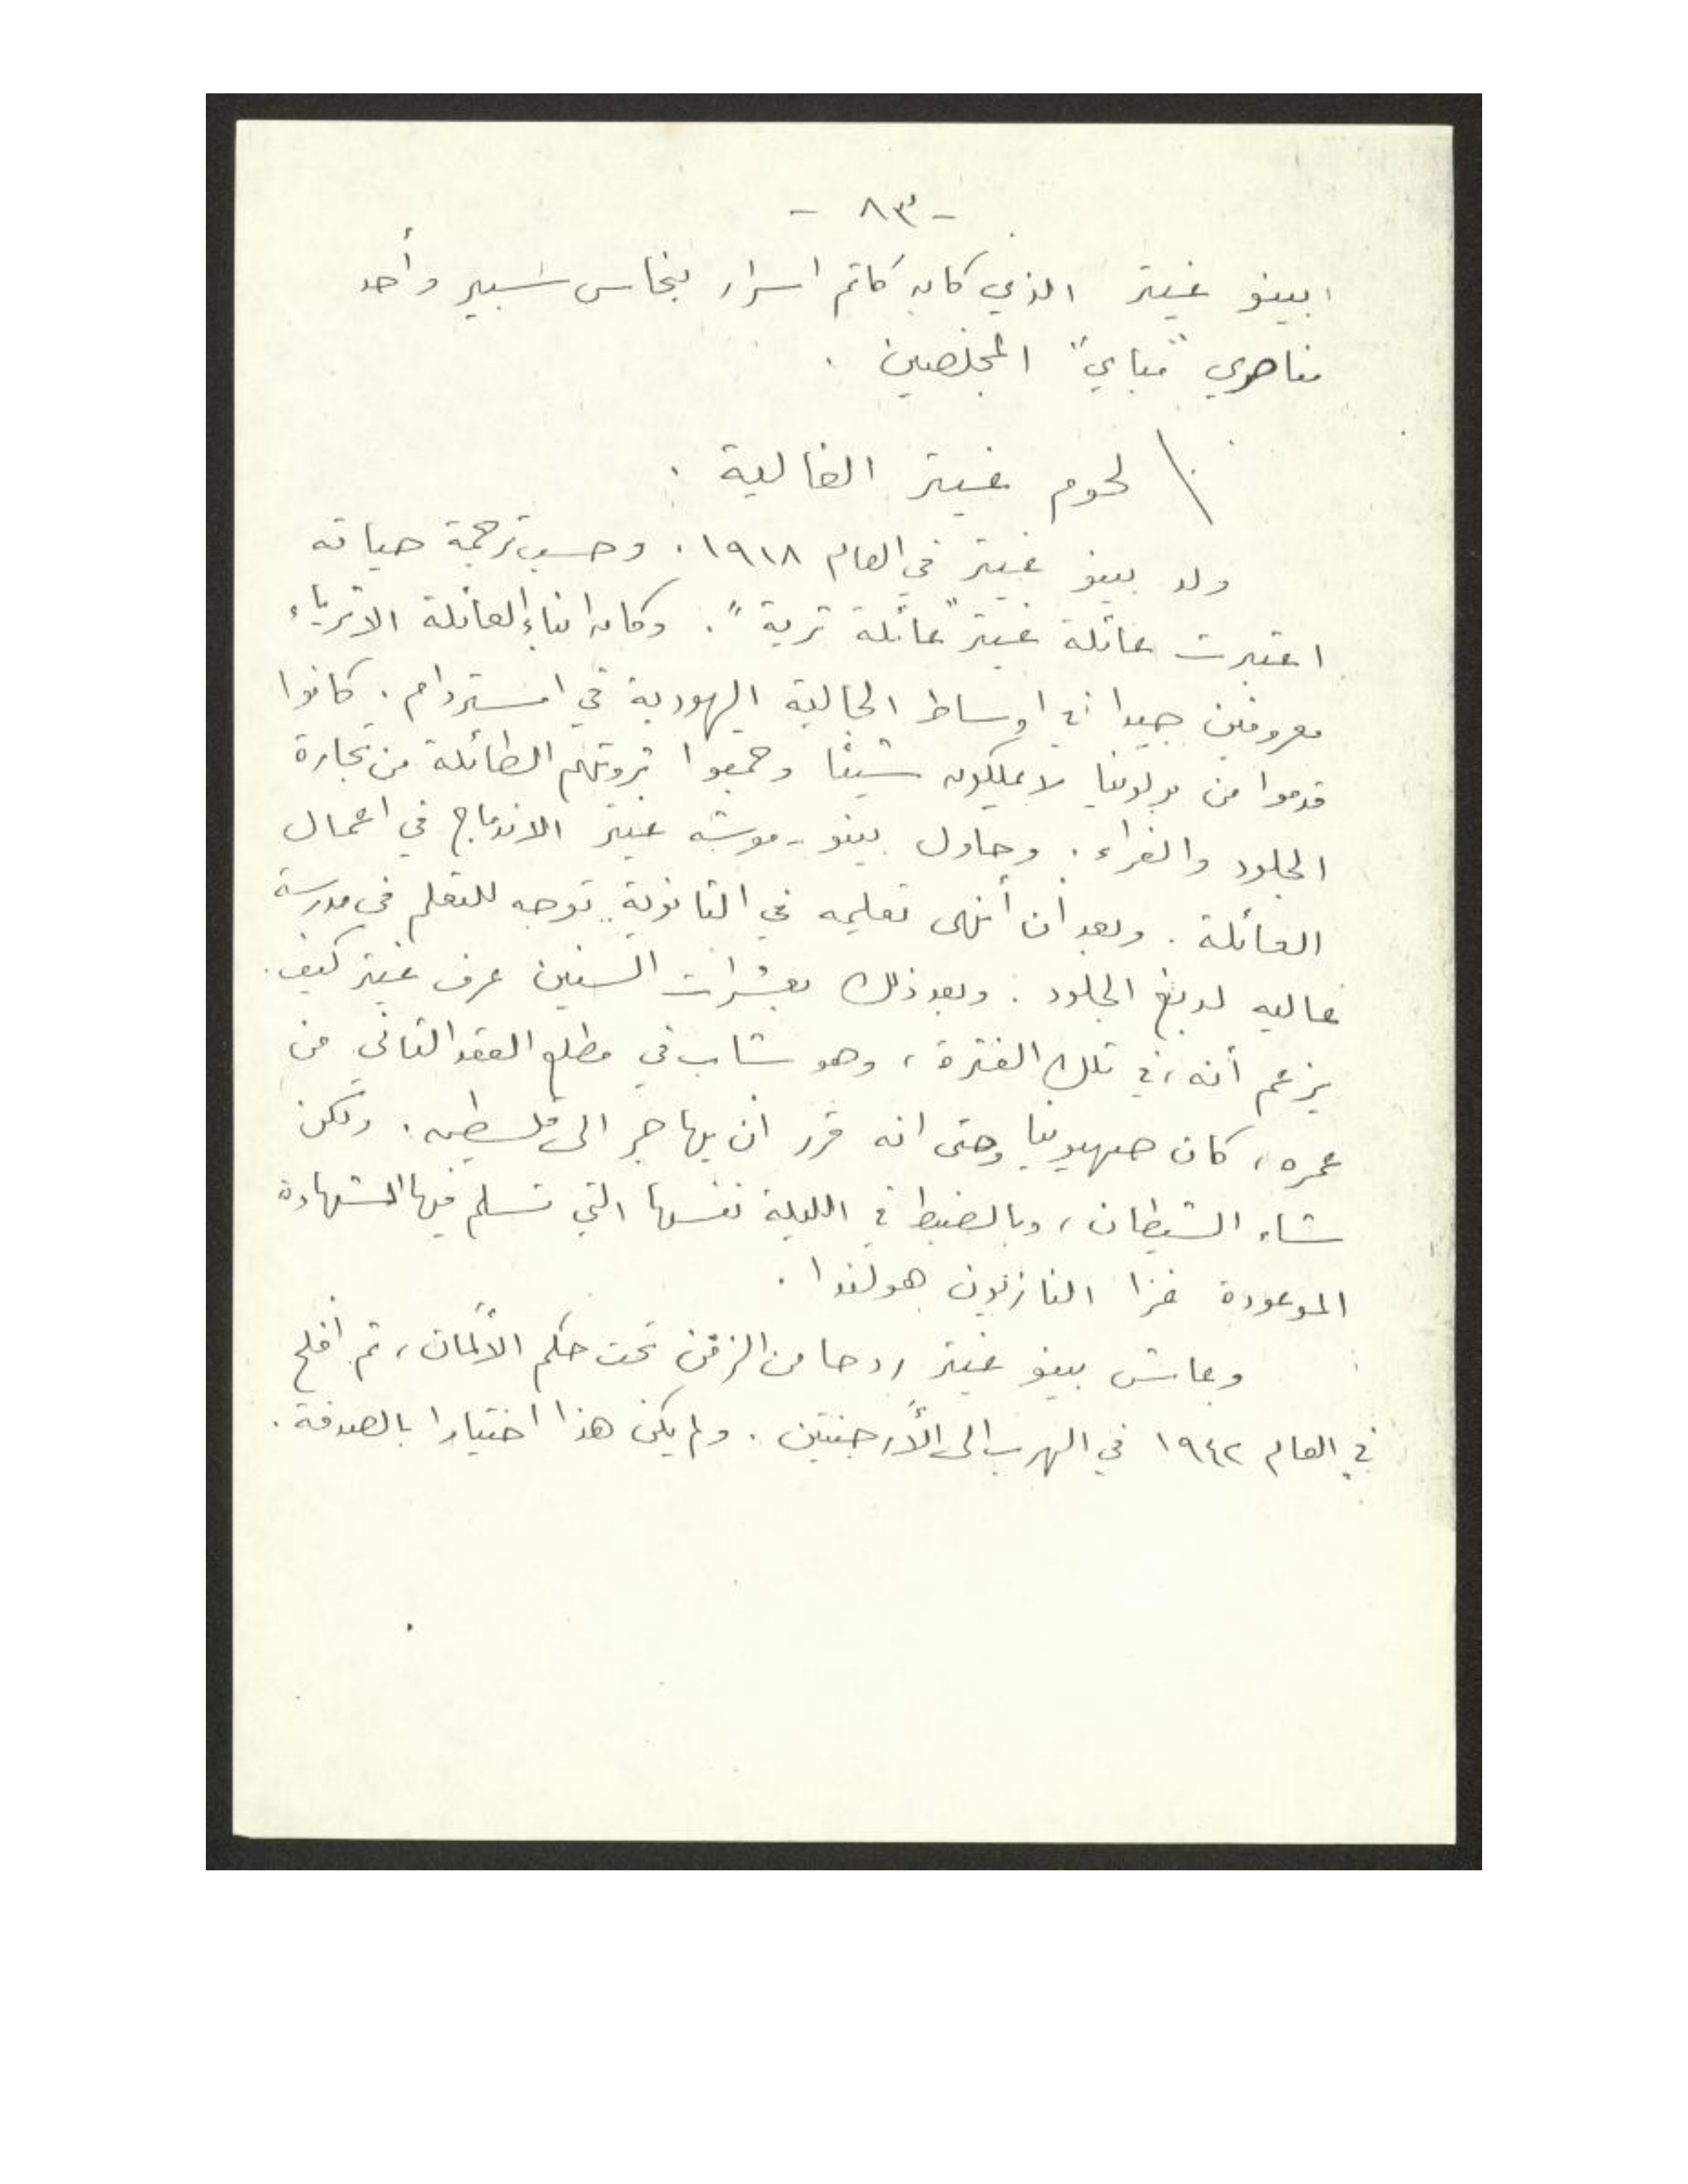 - ٨٣ -
ابينو غيتر الذي كان كاتم اسرار بنحاس سبير وأحد
مناصري "مباي" المخلصين .
لحوم غيتر الغالية .
ولد بينو غيتر في العام ١٩١٨ . وحسب ترجمة حياته
اعتبرت عائلة غيتر "عائلة ثرية" . وكان ابناء العائلة الاثرياء
معروفين جيدا في اوساط الجالية اليهودية في امستردام . كانوا
قدموا من بولونيا لا يملكون شيئا وجمعوا ثروتهم الطائلة من تجارة
الجلود والفراء . وحاول بينو - موشه غيتر الاندماج في اعمال
العائلة . وبعد أن أنهى تعليمه في الثانوية توجه للتعلم في مدرسة
عاليه لدبغ الجلود . وبعد ذلك بعشرات السنين عرف غيتر كيف
يزعم أنه ، في تلك الفترة ، وهو شاب في مطلع العقد الثاني من
عمره ، كان صهيونيا وحتى انه قرر ان يهاجر الى فلسطين . ولكن
شاء الشيطان ، وبالضبط في الليلة نفسها التي تسلم فيها الشهادة
الموعودة غزا النازيون هولندا .
وعاش بينو غيتر ردحا من الزمن تحت حكم الألمان ، ثم أفلح
في العام ١٩٤٢ في الهرب الى الأرجنتين . ولم يكن هذا اختيارا بالصدفة .